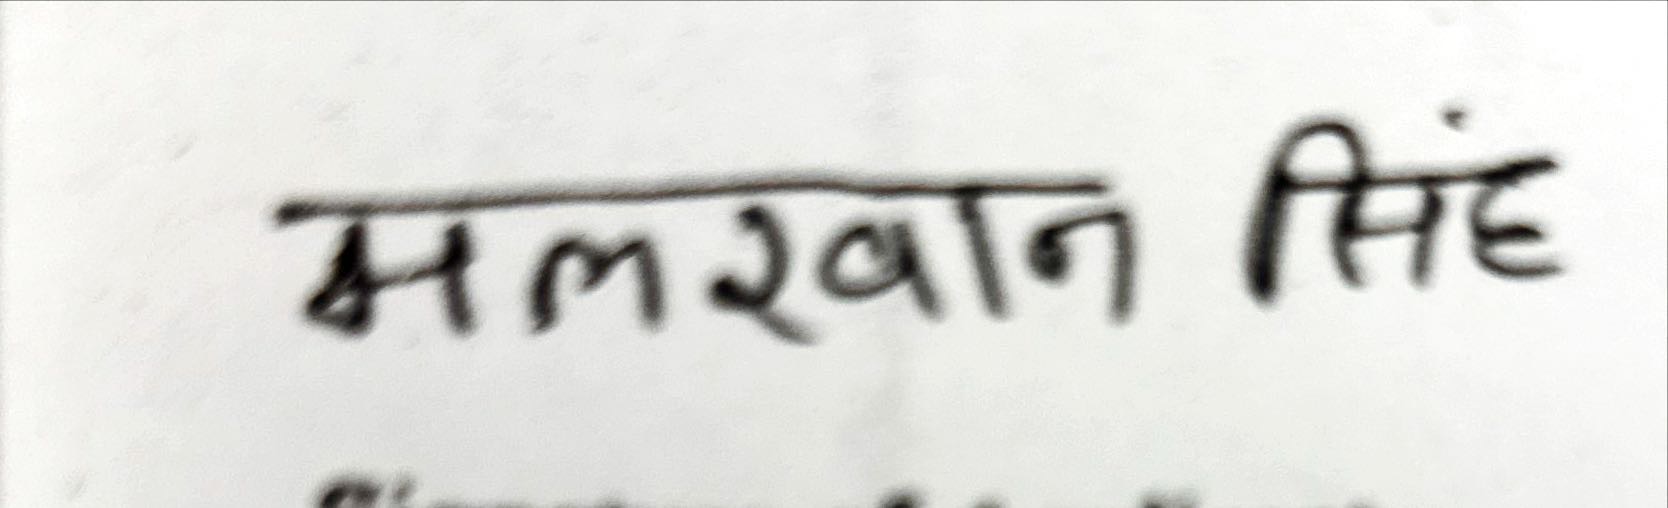 मलखान सिंह